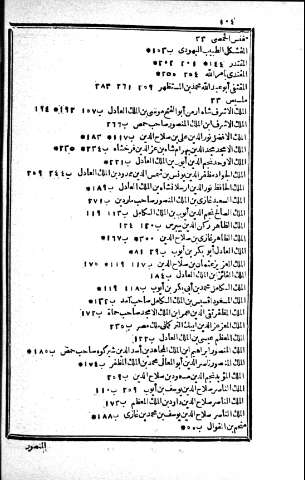 ٤٠٤
مفلس الحمصى ٢٣
المشكل الطبيب اليهودى ب١٥٣*
المقتدر ١٤٤* ٢٠١ ٢٠٢*
المقتدى بامر الله ٢٥٤ ٢٥٥*
المقتفى أبو عبد الله محمد بن المستظهر ٢٥٩ ٢٦١ ٢٨٣
ملسيس ٢٣
الملك الاشرف شاه ارمن أبو الفتح موسى بن الملك العادل ب١٥٧ ١٩٣* ١٩٤
الملك الاشرف ابن الملك المنصور صاحب حمص ب٢٦٦
الملك الافضل نور الدين على بن صلاح الدين ب١١٧ ١٨٣*
الملك الامجد مجد الدين بهرام شاه بن عز الدين فرخشاه ب٢٣٤* ٢٣٥*
الملك الاوحد نجم الدين أيوب بن الملك العادل ب٢٢١*
الملك الجواد مظفر الدين يونس بن شمس الدين ممدود بن الملك العادل ب٢٤٤ ٢٥٩
الملك الحافظ نور الدين ارسلانشاه بن الملك العادل ب١٨٩*
الملك السعيد غازى بن الملك المنصور صاحب ماردين ب٢٧١
الملك الصالح نجم الدين أيوب بن الملك الكامل ب١١٣ ١١٩
الملك الظاهر ركن الدين بيبرس ب١٢٠ ١٢٤
الملك الظاهر غازى بن صلاح الدين ٢٠٠* ب١٩٧*
الملك العادل أبو بكر بن أيوب ب٢٩ ٨١*
الملك العزيز عثمان بن صلاح الدين ب١١٧ ١١٩* ١٧٠
الملك الفائز بن الملك العادل ب١٨٤
الملك الكامل محمد بن أبى بكر بن أيوب ب١١٨ ١١٩*
الملك المسعود اقسيس بن الملك الكامل صاحب آمد ب١٣٢*
الملك المظفر تقى الدين عمر ابن الملك الامجد صاحب حماة ب١٧٢
الملك المعز عز الدين ايبك التركمانى ملك مصر ب٢٣٥
الملك المعظم عيسى بن الملك العادل ب١٢٢
الملك المنصور ابراهيم ابن الملك المجاهد بن أسد الدين شيركوه صاحب حمص ب١٨٠*
الملك المنصور ناصر الدين أبو المعالى محمد بن الملك المظفر ب١٧٤*
الملك المؤيد نجم الدين مسعود بن صلاح الدين ب٢٥٩
الملك الناصر صلاح الدين يوسف بن أيوب ٢٥٩ ب١١٠
الملك الناصر صلاح الدين داود بن الملك المعظم ب١٧٢
الملك الناصر صلاح الدين يوسف بن محمد بن غازى ب١٨٨*
منجم بن الفوال ب٥٠*
المنصور